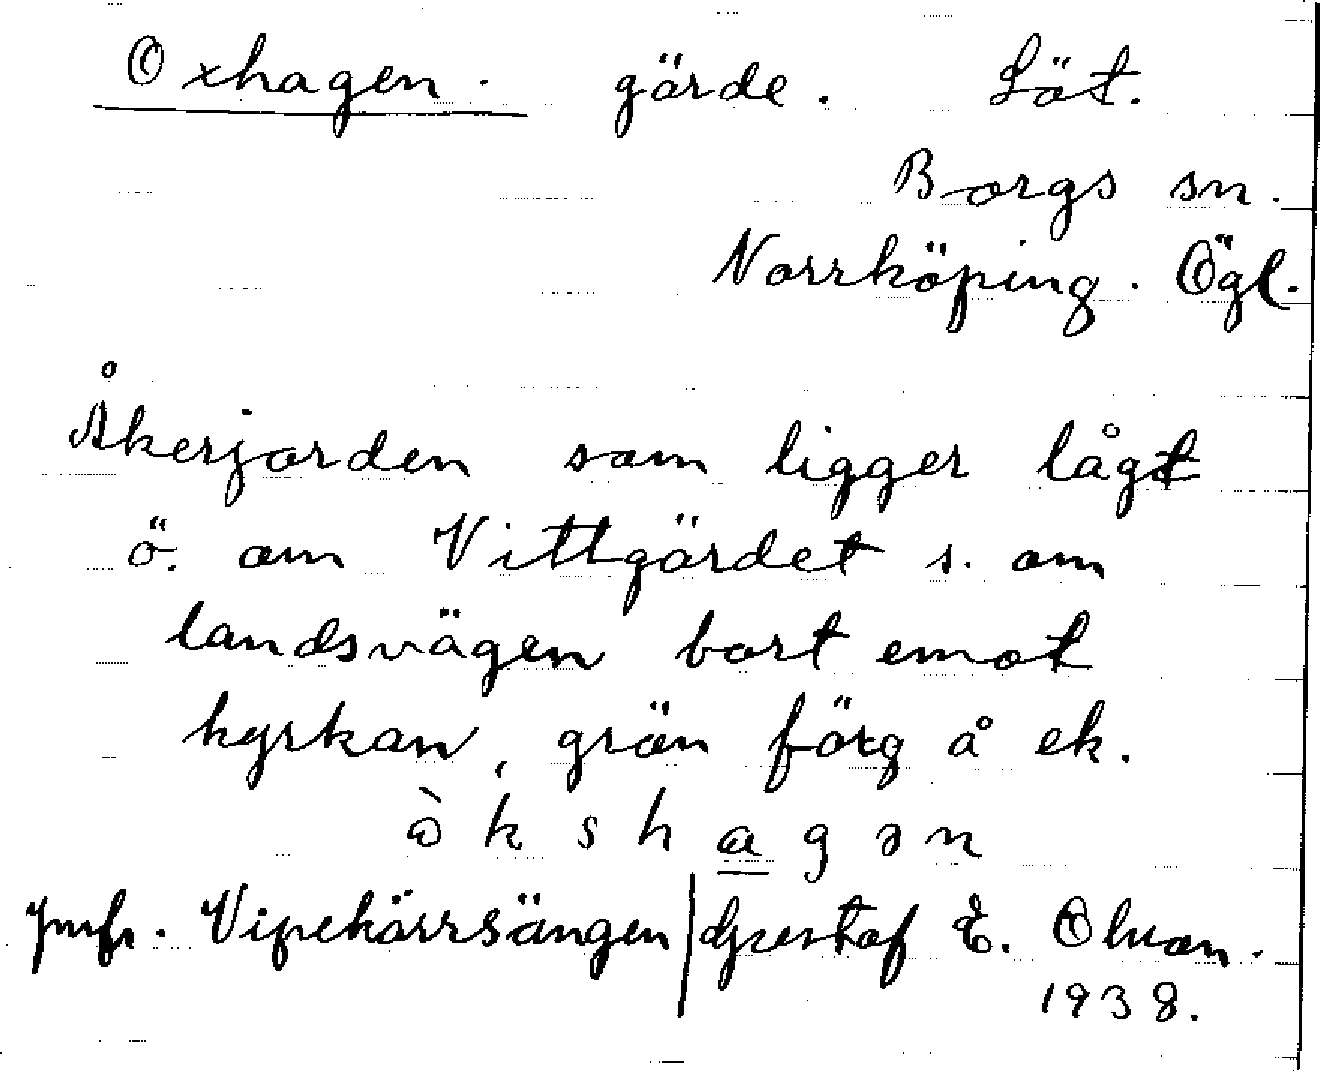 Oxhagen. gärde. Löt.
Borgs sn.
Norrköping. Ögl.
Åkerjorden som ligger lågt
ö. om Vittgärdet s. om
landsvägen bort emot
kyrkan, grän färg å ek.
ò k s h a g ə n
jmfr. Vipekärrsängen | Gustaf E. Olsson.
1938.